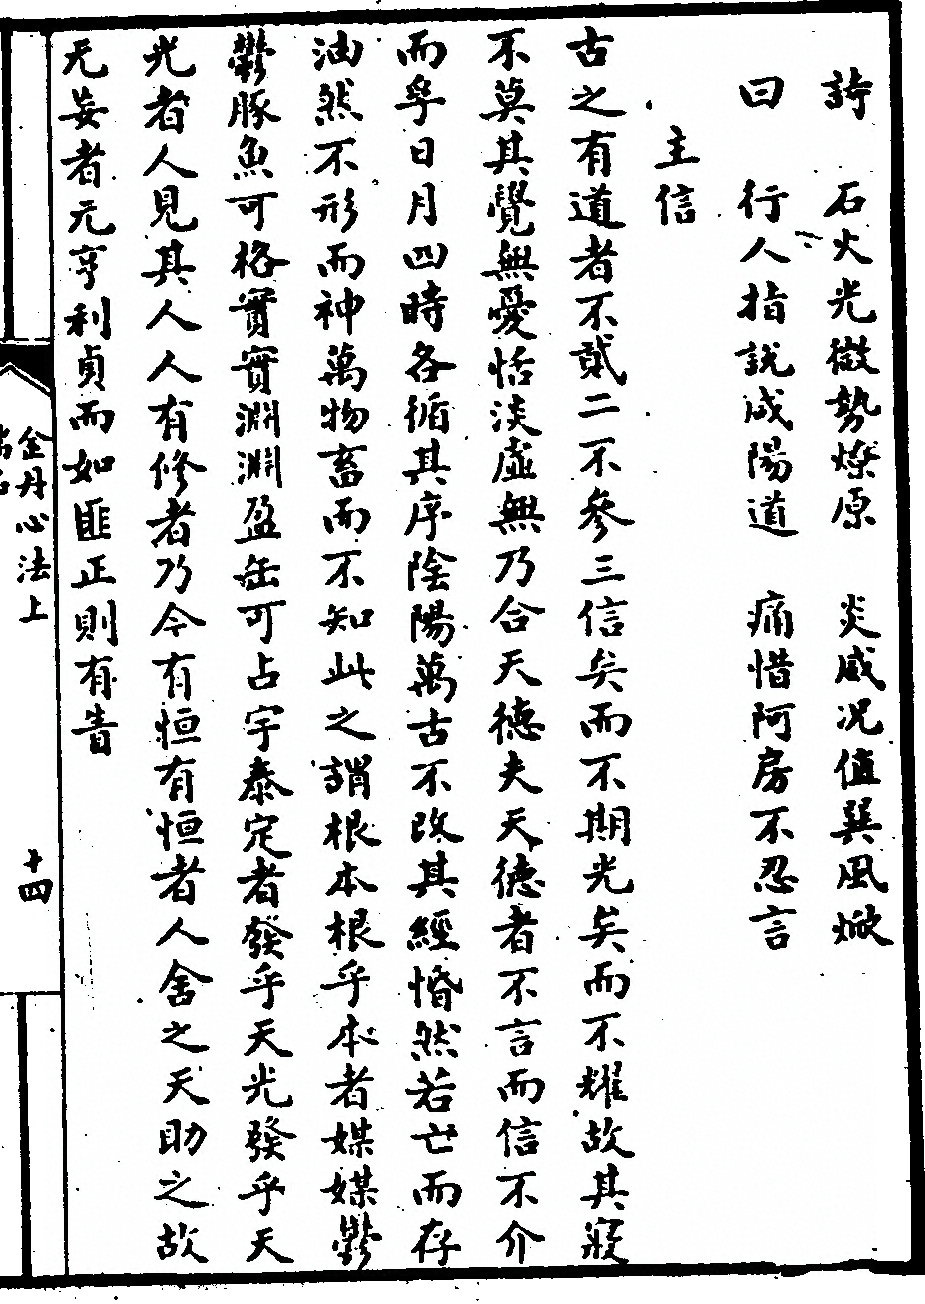 詩　石火光微勢燎原　炎威況值巽風焮
曰　行人指說咸陽道　痛惜阿房不忍言
主信
古之有道者不貳二不參三信矣而不期光矣而不耀故其寢
不夢其覺無憂恬淡虛無乃合天德夫天德者不言而信不介
而孚日月四時各循其序陰陽萬古不改其經惛然若亡而存
油然不形而神萬物畜而不知此之謂根本根乎本者媒媒鬱
鬱豚魚可格實實淵淵盈缶可占宇泰定者發乎天光發乎天
光者人見其人人有修者乃今有恒有恒者人舍之天助之故
无妄者元亨利貞而如匪正則有眚
金丹心法上
十四